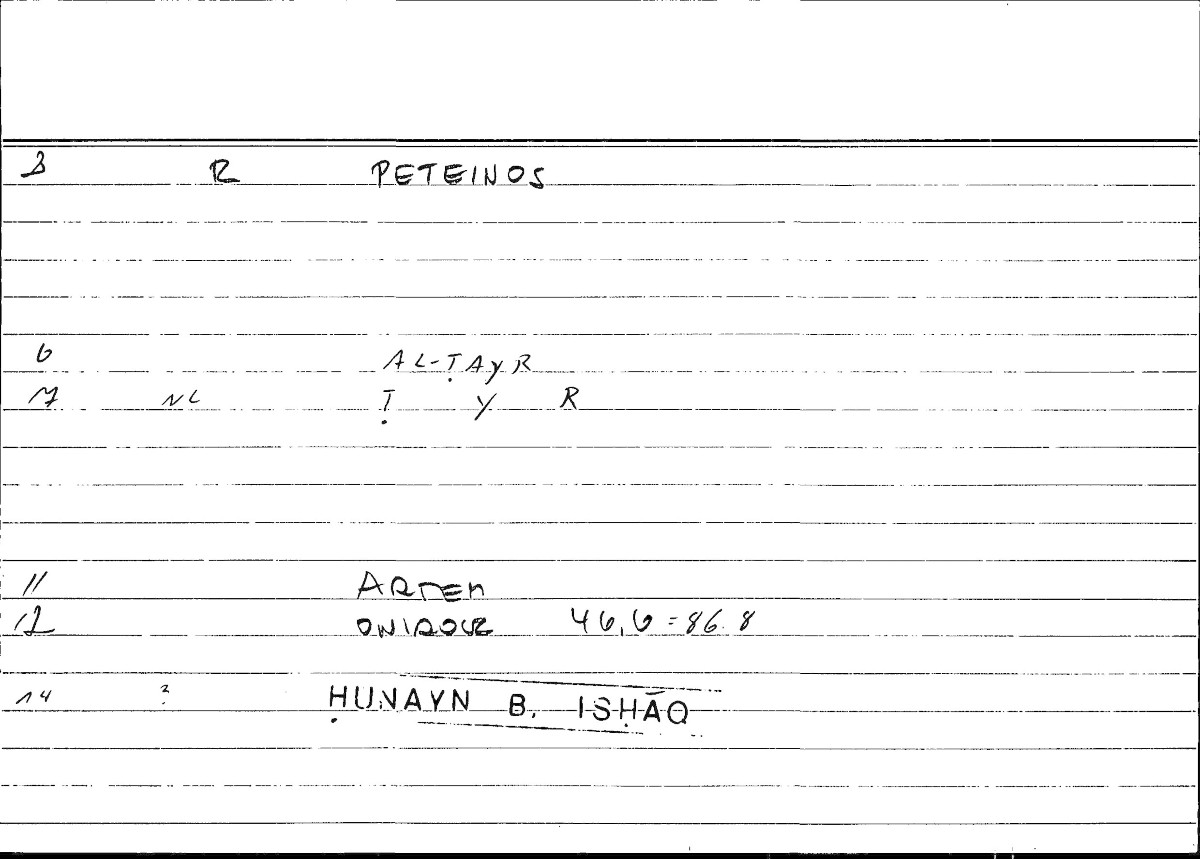 3 R PETEINOS
6 AL-ṬAYR
7 NL Ṭ Y R
11 ARTEM
12 ONIROCR 46,6 = 86.8
14 ? ḤUNAYN B. ISḤĀQ